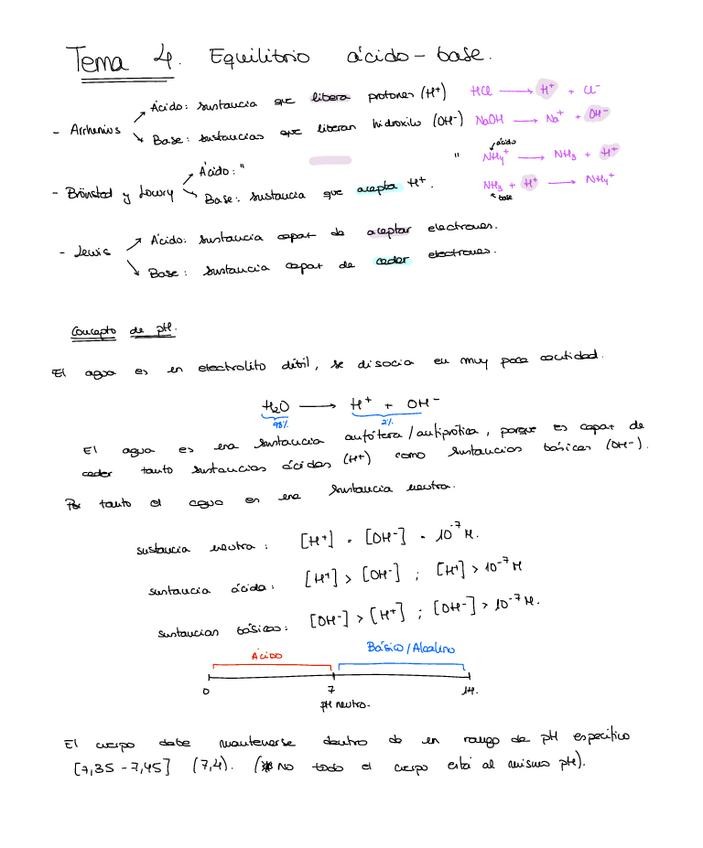 Tema 4. Equilibrio ácido-base.
Ácido: sustancia que libera protones (H⁺) HCl → H⁺ + Cl⁻
- Arrhenius
Base: sustancias que liberan hidroxilo (OH⁻) NaOH → Na⁺ + OH⁻
ácido
Ácido: " " NH₄⁺ → NH₃ + H⁺
- Brönsted y Lowry
Base: sustancia que acepta H⁺. NH₃ + H⁺ → NH₄⁺
base
Ácido: sustancia capaz de aceptar electrones.
- Lewis
Base: sustancia capaz de ceder electrones.
Concepto de pH.
El agua es un electrolito débil, se disocia en muy poca cantidad.
H₂O → H⁺ + OH⁻
98% 2%
El agua es una sustancia anfótera/anfiprótica, porque es capaz de
ceder tanto sustancias ácidas (H⁺) como sustancias básicas (OH⁻).
Por tanto el agua es una sustancia neutra.
sustancia neutra: [H⁺] = [OH⁻] = 10⁻⁷ M.
sustancia ácida: [H⁺] > [OH⁻] ; [H⁺] > 10⁻⁷ M
sustancias básicas: [OH⁻] > [H⁺] ; [OH⁻] > 10⁻⁷ M.
Ácido Básico/Alcalino
0 7 14.
pH neutro.
El cuerpo debe mantenerse dentro de un rango de pH específico
[7,35-7,45] (7,4). (* No todo el cuerpo está al mismo pH).